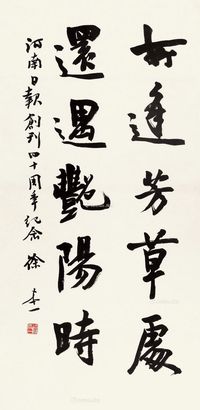 逢芳草處
還遇艷陽時
河南日報創刊四十周年紀念 徐本一